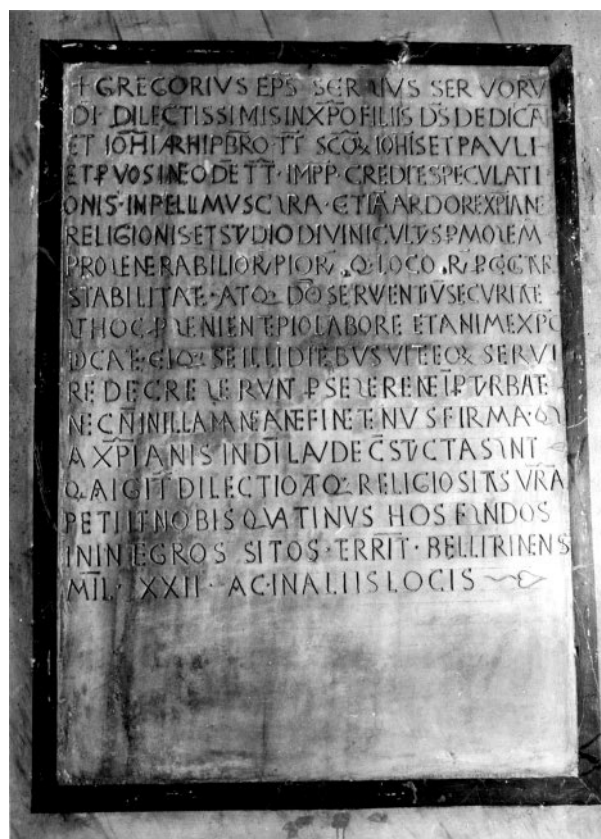 + GREGORIVS EPS SERVVS SERVORV
DI DILECTISSIMIS IN XPO FILIIS DS DEDICA
ET IOHI ARHIPBRO TT SCOR IOHIS ET PAVLI
ET P VOS IN EODE TT · IMPP · CREDITE SPECVLATI
ONIS · INPELLIMVS CVRA · ETIA ARDORE XPIANE
RELIGIONIS ET STVDIO DIVINI CVLTVS
PRO VENERABILIOR PIOR Q LOCOR
STABILITATE · ATQ DO SERVENTIV SECVRITATE
VT HOC PVENIENTE PIO LABORE ET ANIME XPO
SE ILLI DIEBVS VITE EOR SERVI
RE DECREVERVNT P SEVERENT IPTVRBATE
NEC N IN ILLA MANEANT FINETENVS FIRMA · Q
A XPIANIS IN DI LAVDE CSTVCTA SVNT
QA IGIT DILECTIO ATQ RELIGIOSITAS VRA
PETIIT NOBIS QVATINVS HOS FVNDOS
IN INTEGROS SITOS · TERRIT · BELLITRINENS
MIL · XXII · AC · IN ALIIS LOCIS